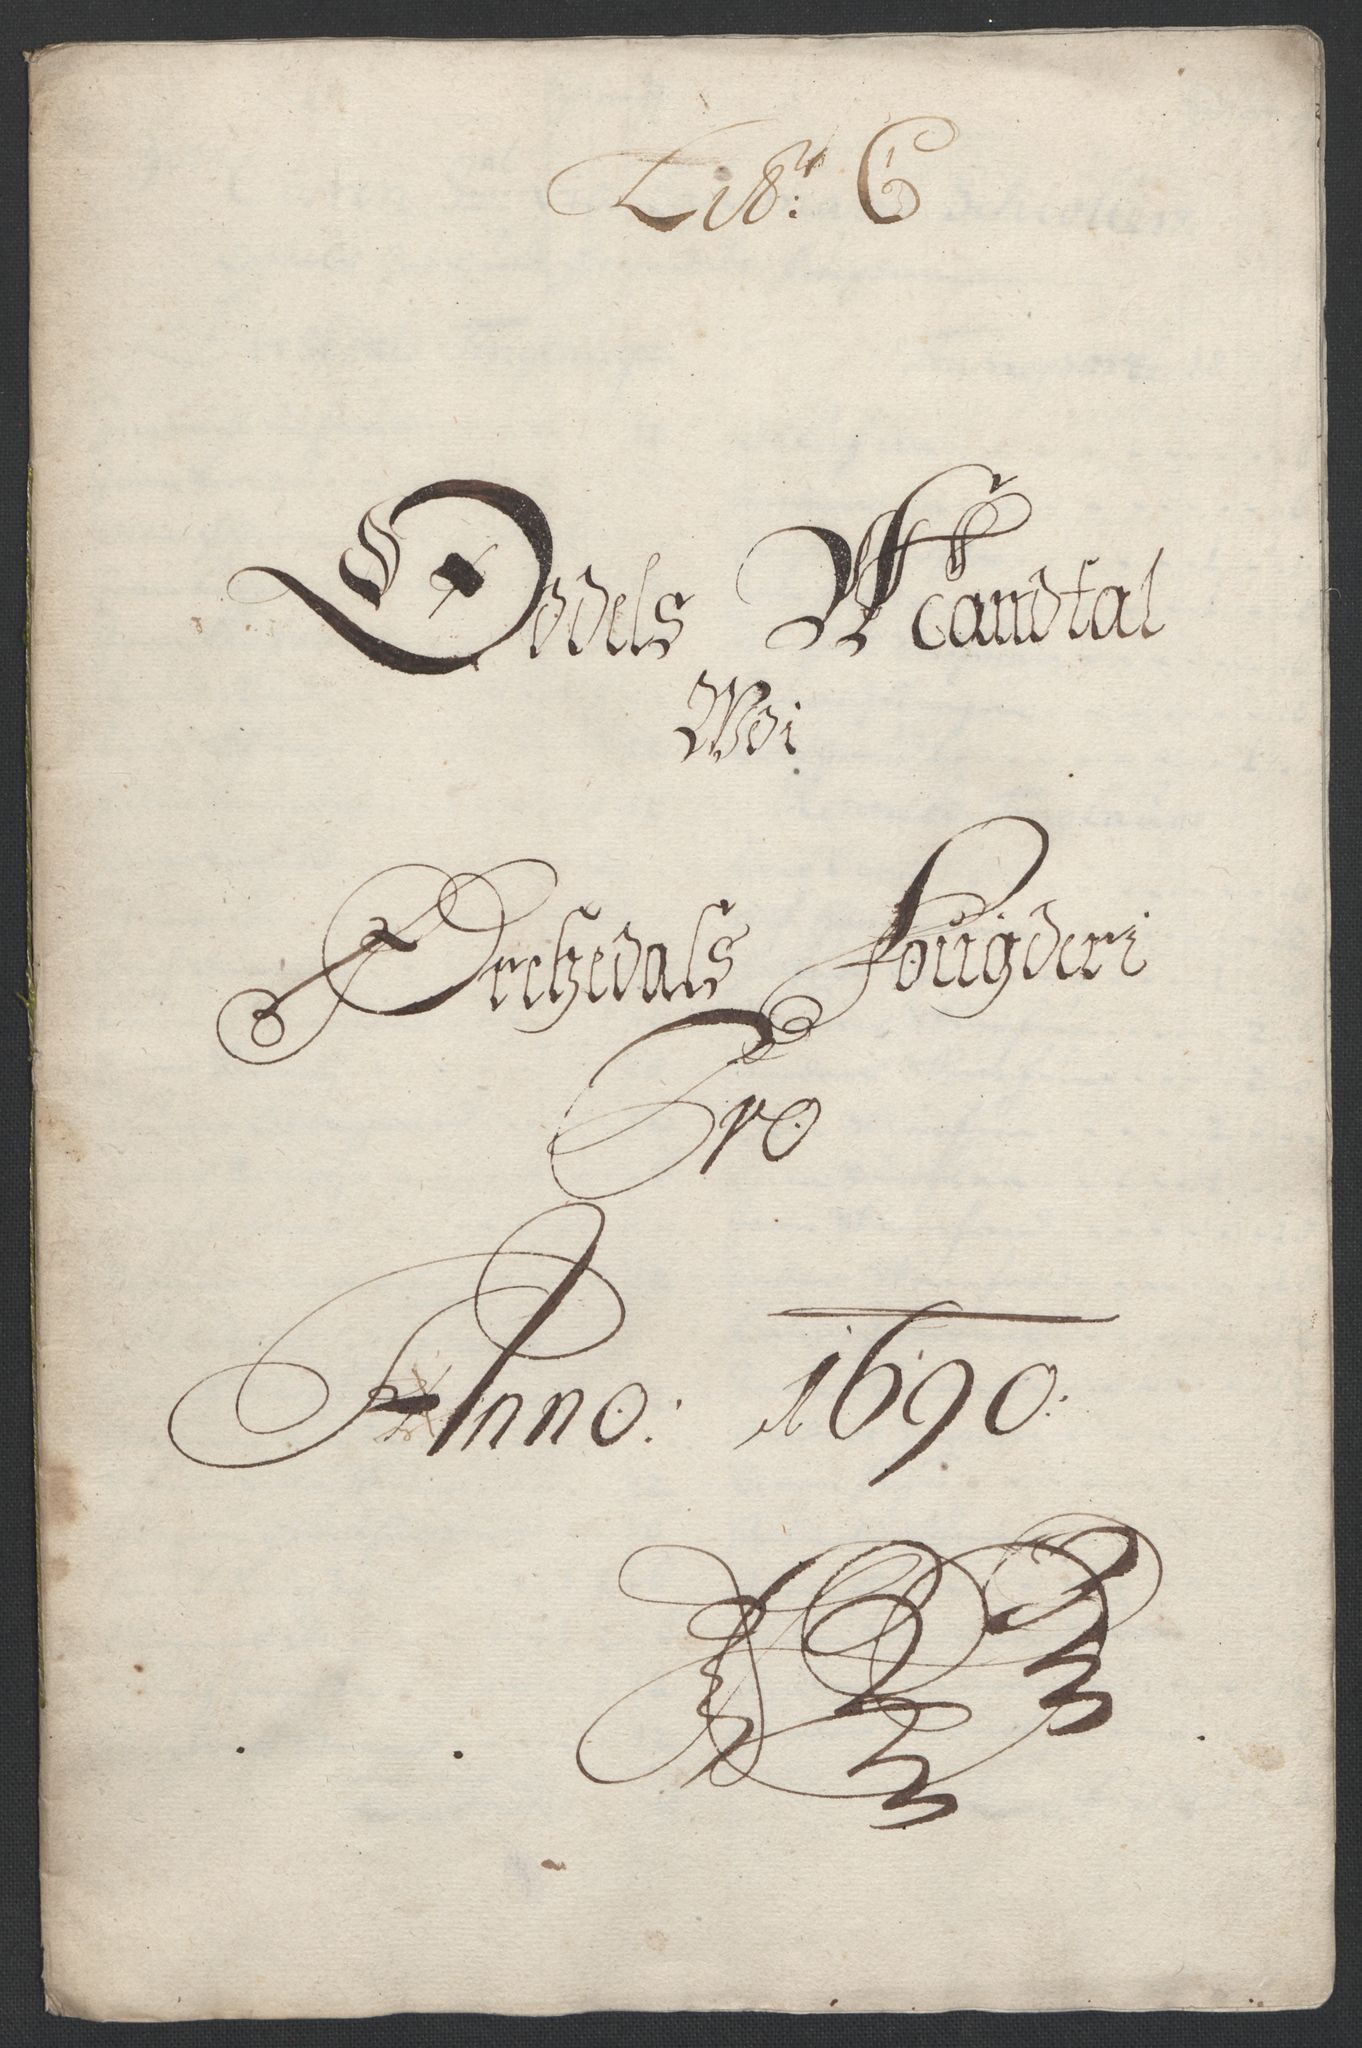 Litr: C
Oddels Mandtal
Wdi
Orchedals Fougderi
Pro
Anno: 1690: